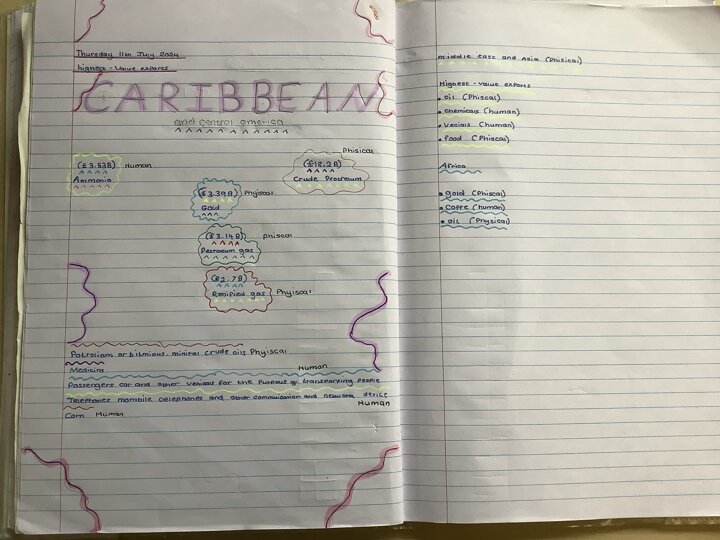 Thursday 11th July 2024
highest-value exports
CARIBBEAN
and central america
Phisical
(£3.53B) Human
Ammonia
(£18.2B)
Crude Protreum
(£3.39B) Phyiscal
Gold
(£3.14B) phiscal
Petroleum gas
(£2.7B)
Renified gas Phyiscal
Patroliam or bitmious. mineral crude oils Phyiscal
Medicins Human
Passengers car and other vehicals for the Purpous of transporting People
Telephones mombile celephones and other communication and network device
Human
Corn Human
Middle East and Asia (Phisical)
Highest-value exports
• oil (Phiscal)
• chemicals (human)
• vecials (human)
• food (Phiscal)
Africa
• gold (Phiscal)
• coffe (human)
• oil (Physical)